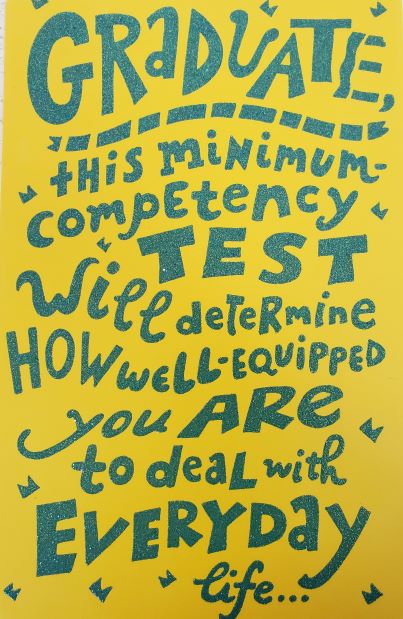 GRADUATE,
this minimum-
competency
TEST
Will determine
HOW WELL-EQUIPPED
you ARE
to deal with
EVERYDAY
life...